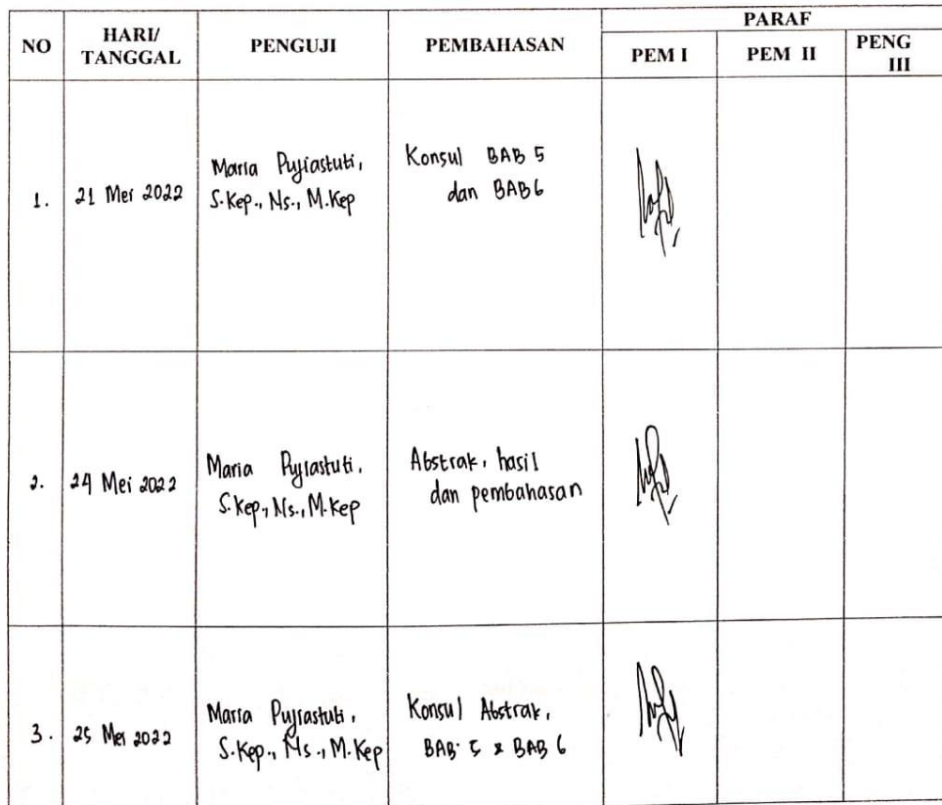 NO
HARI/
TANGGAL
PENGUJI
PEMBAHASAN
PARAF
PEM I
PEM II
PENG
III
1.
21 Mei 2022
Maria Pujiastuti,
S.Kep., Ns., M.Kep
Konsul BAB 5
dan BAB 6
2.
24 Mei 2022
Maria Pujiastuti,
S.Kep., Ns., M.Kep
Abstrak, hasil
dan pembahasan
3.
25 Mei 2022
Maria Pujiastuti,
S.Kep., Ns., M.Kep
Konsul Abstrak,
BAB 5 & BAB 6